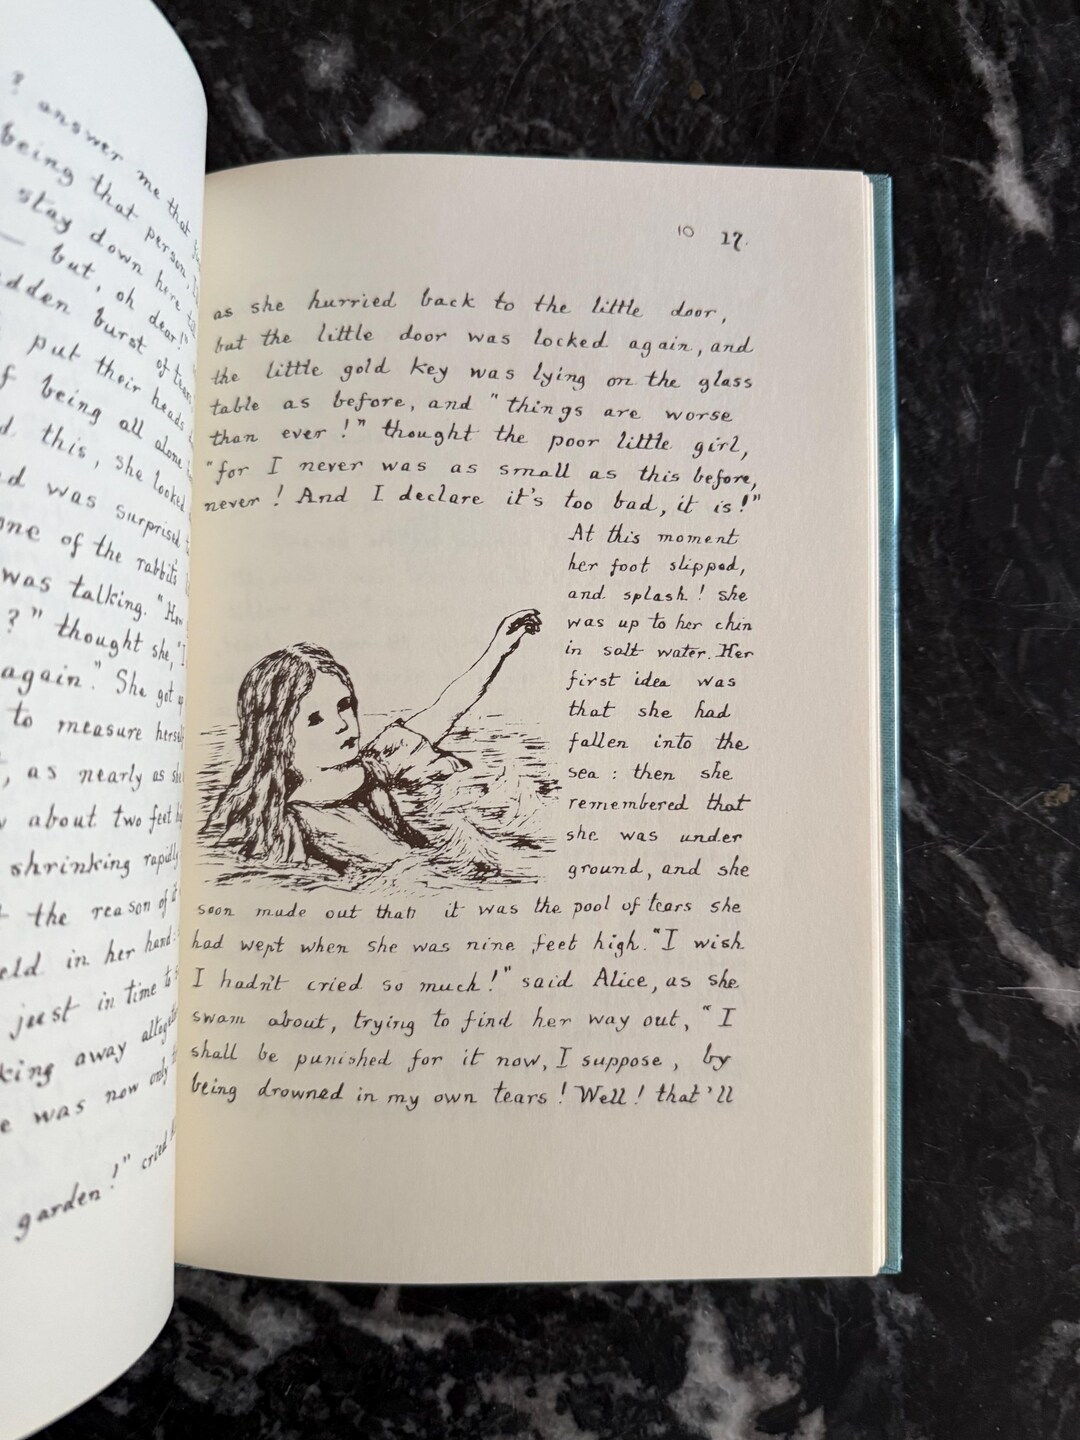 ? answer me that
being that person,
stay down here
— but, oh dear!"
burst of tears
put their heads
being all alone
this, she looked
was surprised
one of the rabbits
was talking. "How
?" thought she, "I
again." She got
to measure
, as nearly as she
about two feet
shrinking rapidly
the reason of it
in her hand:
just in time to
away
was now only
garden!" cried
10 17.
as she hurried back to the little door,
but the little door was locked again, and
the little gold key was lying on the glass
table as before, and "things are worse
than ever!" thought the poor little girl,
"for I never was as small as this before,
never! And I declare it's too bad, it is!"
At this moment
her foot slipped,
and splash! she
was up to her chin
in salt water. Her
first idea was
that she had
fallen into the
sea: then she
remembered that
she was under
ground, and she
soon made out that it was the pool of tears she
had wept when she was nine feet high. "I wish
I hadn't cried so much!" said Alice, as she
swam about, trying to find her way out, "I
shall be punished for it now, I suppose, by
being drowned in my own tears! Well! that'll